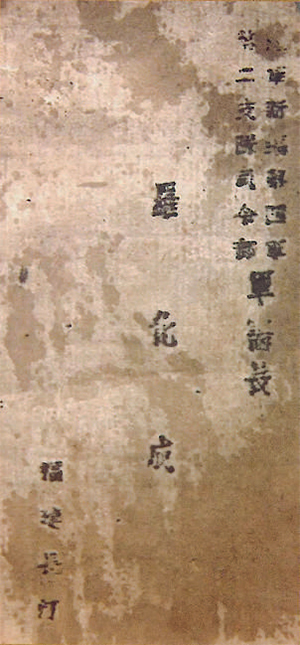 陸軍新編第四軍
第二支隊司令部
軍 長
羅化成
福建長汀